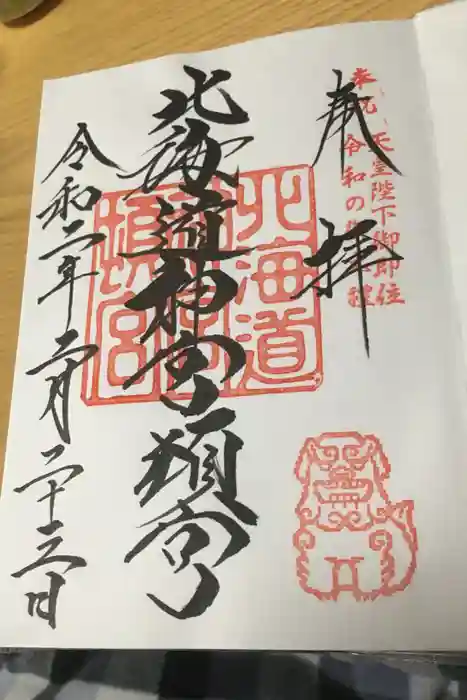 奉祝 天皇陛下御即位
令和の
奉拝
北海道神宮頓宮
北海道神宮頓宮
令和二年二月二十三日